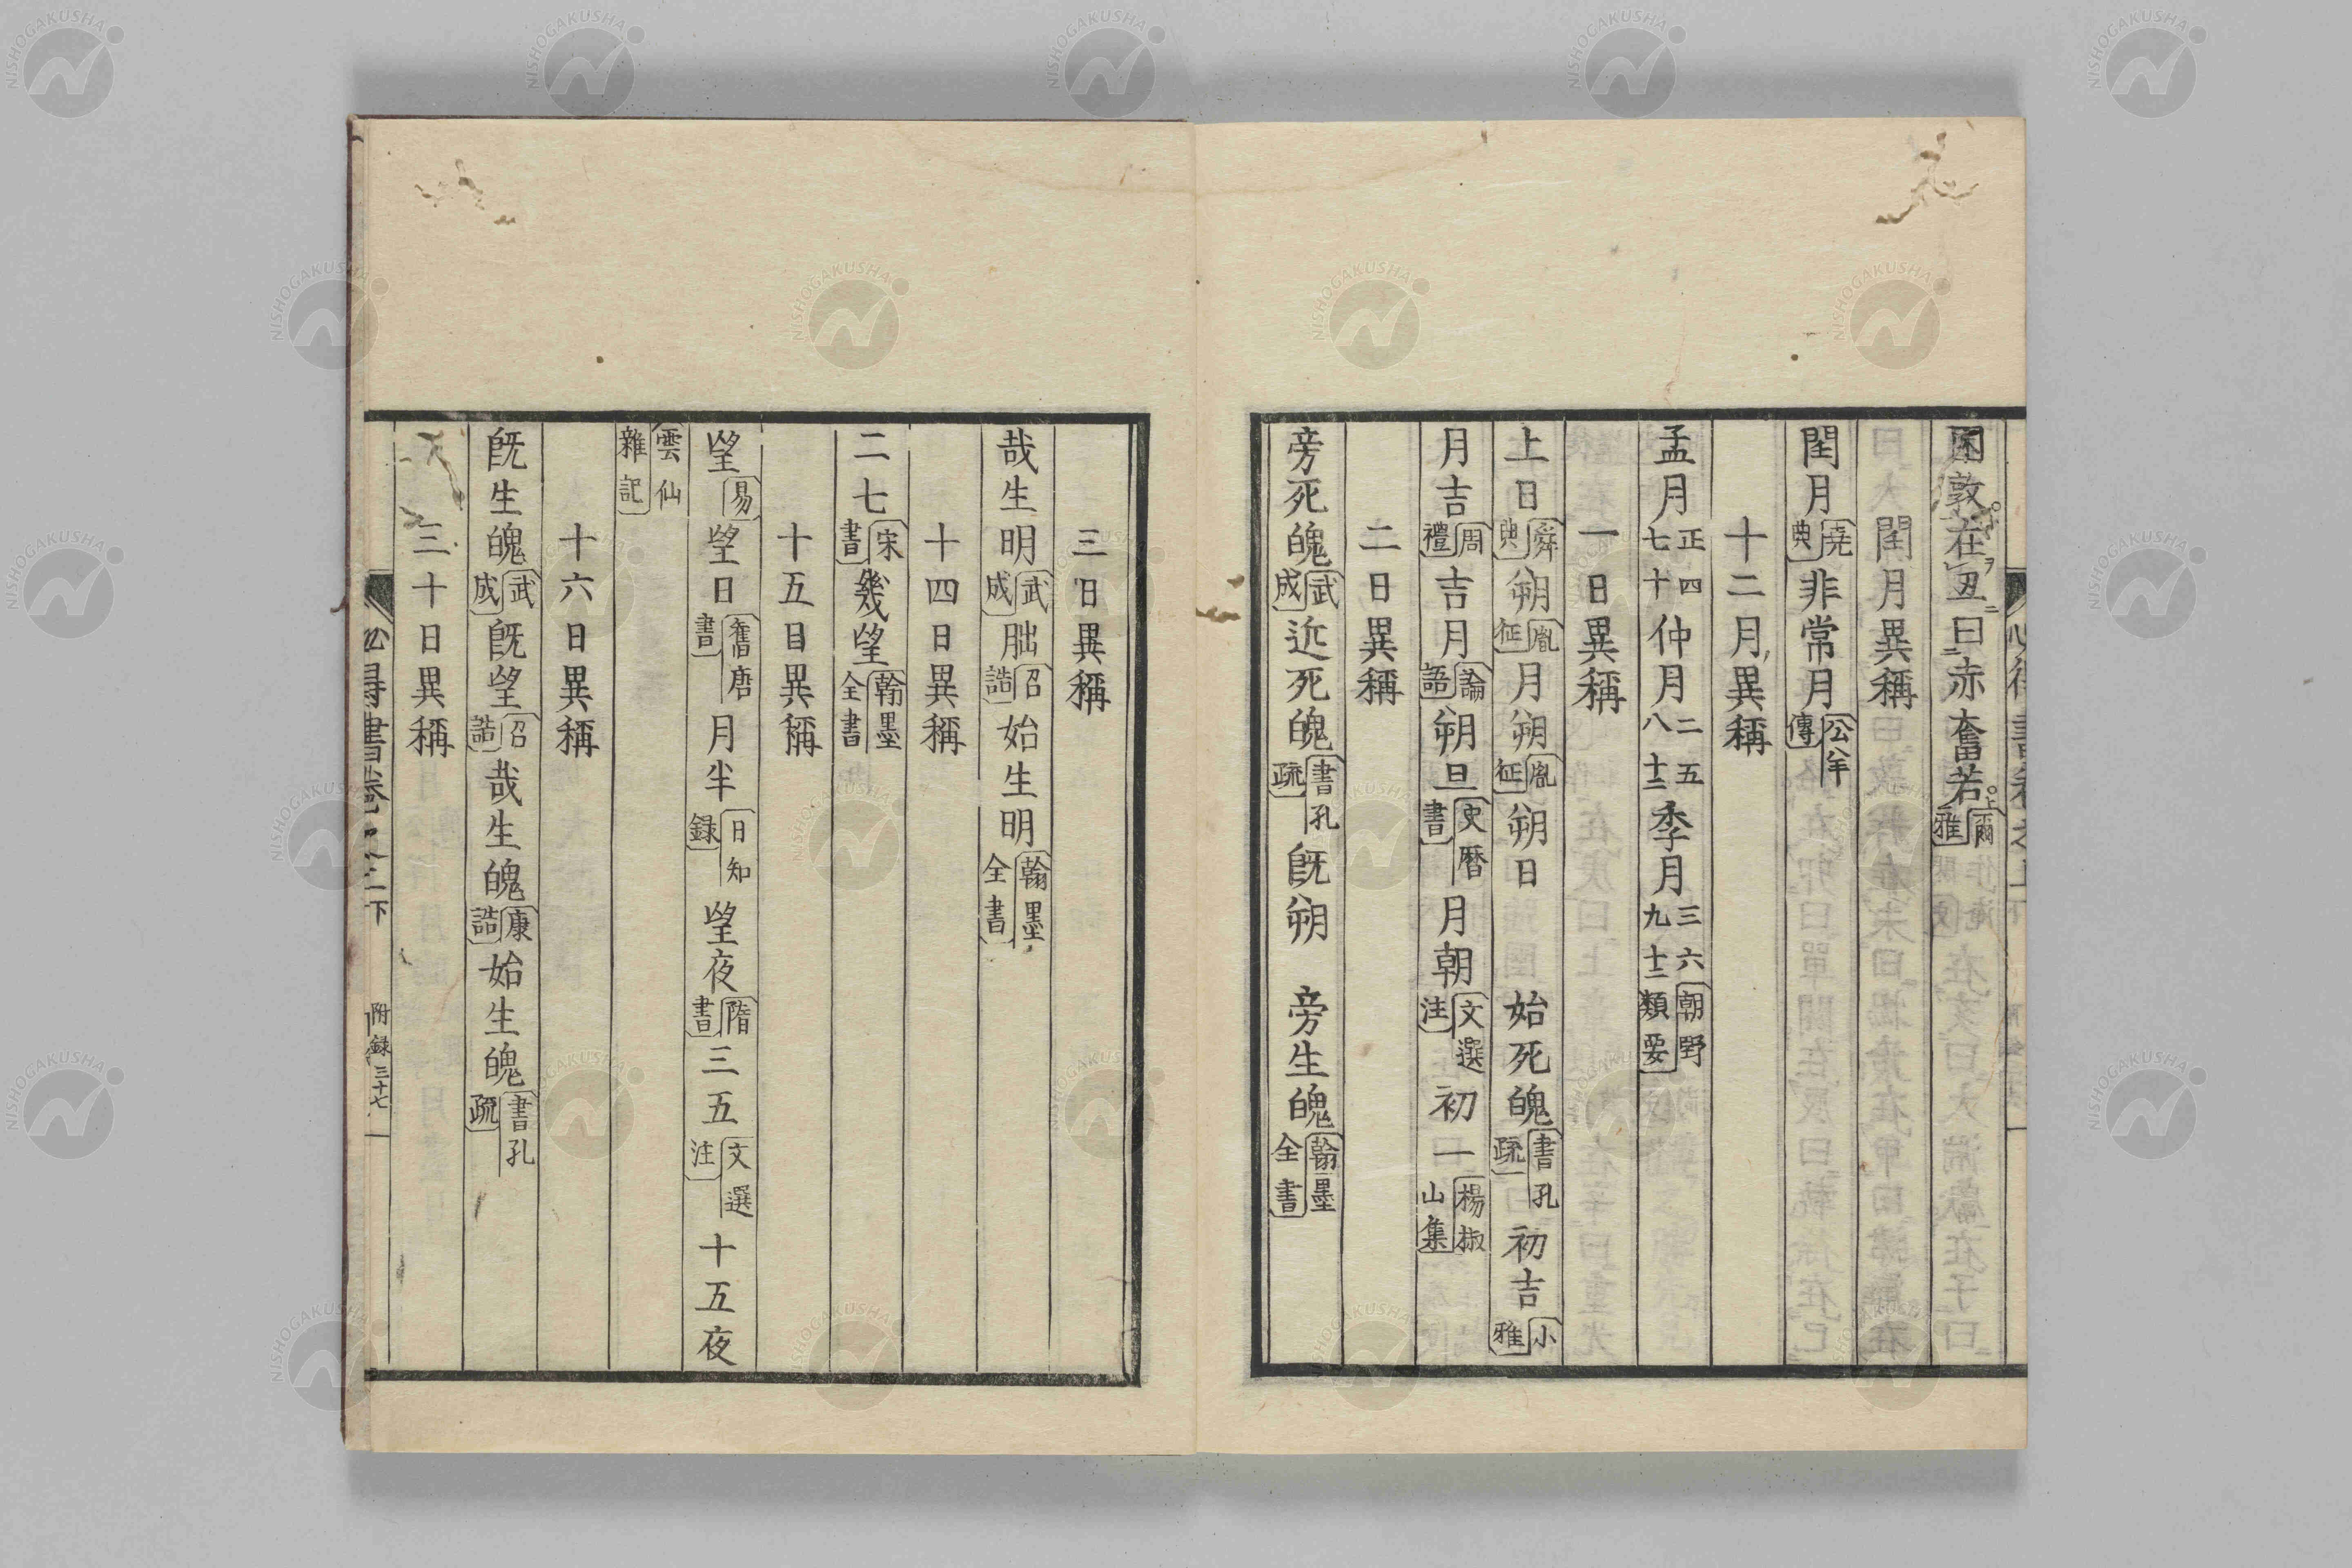 困敦在丑曰赤奮若爾雅
閏月異稱
閏月堯典非常月公羊傳
十二月異稱
孟月正四七十仲月二五八十一季月三六九十二朝野類要
一日異稱
上日舜典朔胤征月朔胤征朔日 始死魄書孔疏初吉小雅
月吉周禮吉月論語朔旦史曆書月朝文選注初一楊椒山集
二日異稱
旁死魄武成近死魄書孔疏旣朔 旁生魄翰墨全書
三日異稱
哉生明武成朏召誥始生明翰墨全書
十四日異稱
二七宋書幾望翰墨全書
十五日異稱
望易望日舊唐書月半日知錄望夜隋書三五文選注十五夜
雲仙雜記
十六日異稱
旣生魄武成旣望召誥哉生魄康誥始生魄書孔疏
三十日異稱
必得書卷之二下 附錄三十七
NISHOGAKUSHA